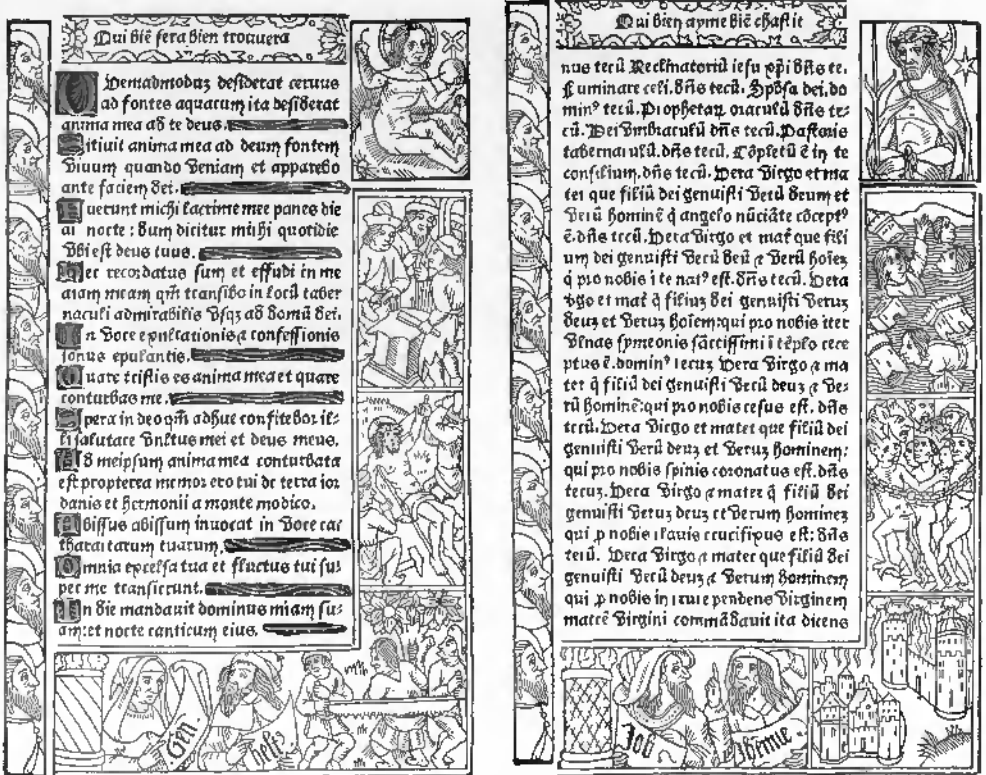 Qui biē fera bien trouvera
QUemadmoduz desiderat ceruus
ad fontes aquarum ita desiderat
anima mea ad te deus.
Sitiuit anima mea ad deum fontem
viuum quando veniam et apparebo
ante faciem dei.
Fuerunt michi lacrime mee panes die
ac nocte: dum dicitur michi quotidie
vbi est deus tuus.
Hec recordatus sum et effudi in me
aīam meam qm̄ transibo in locū taber
naculi admirabilis vsqz ad domū dei.
In voce exultationis et confessionis
sonus epulantis.
Quare tristis es anima mea et quare
conturbas me.
Spera in deo qm̄ adhuc confitebor il-
li salutare vultus mei et deus meus.
Ad meipsum anima mea conturbata
est propterea memor ero tui de terra ior
danis et hermonii a monte modico.
Abissus abissum inuocat in voce cat
tharactarum tuarum.
Omnia excelsa tua et fluctus tui su-
per me transierunt.
In die mandauit dominus miam su-
am: et nocte canticum eius.
Gen.
Qui bien ayme biē chastit
nus tecū Reclinatoriū iesu xp̄i dn̄s te.
Luminare celi. dn̄s tecū. Spōsa dei. do
minꝰ tecū. Prophetaꝝ oraculū dn̄s te-
cū. Dei vmbraculū dn̄s tecū. Pastoris
tabernaculū. dn̄s tecū. Cōpletū ē in te
consilium. dn̄s tecū. Vera virgo et ma
ter que filiū dei genuisti verū deum et
verū hominē q̄ angelo nūciāte cōceptꝰ
ē. dn̄s tecū. Vera virgo et mat̄ que fili
um dei genuisti verū deū et verū hoīez
q̄ pro nobis i te natꝰ est. dn̄s tecū. Vera
vgo et mat̄ q̄ filius dei genuisti veruz
deuz et veruz hoīem: qui pro nobis iter
vlnas symeonis sāctissimi i tēplo rece
ptus ē. dominꝰ tecuz Vera virgo et ma
ter q̄ filiū dei genuisti verū deuz et ve-
rū hominē: qui pro nobis cesus est. dn̄s
tecū. Vera virgo et mater que filiū dei
genuisti verū deuz et veruz hominem:
qui pro nobis spinis coronatus est. dn̄s
tecuz. Vera virgo et mater q̄ filiū dei
genuisti veruz deuz et verum hominez
qui ꝓ nobis i cruce crucifixus est: dn̄s
tecū. Vera virgo et mater que filiū dei
genuisti verū deuz et verum hominem
qui ꝓ nobis in cruce pendens virginem
matrē virgini commādauit ita dicens
Job
Iheremie.